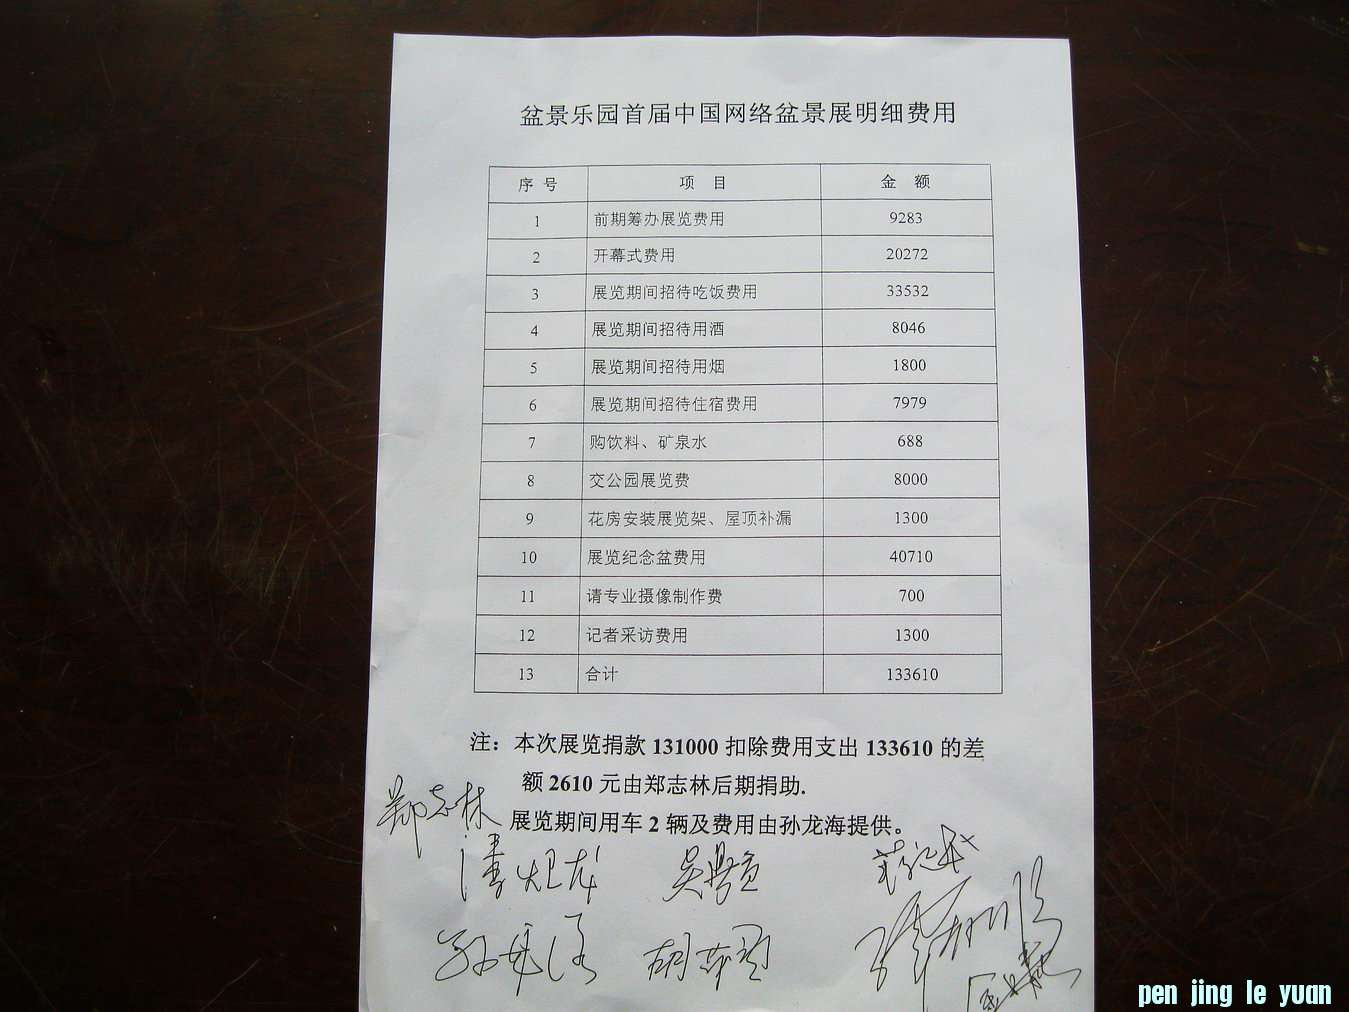 盆景乐园首届中国网络盆景展明细费用
序 号 项 目 金 额
1 前期筹办展览费用 9283
2 开幕式费用 20272
3 展览期间招待吃饭费用 33532
4 展览期间招待用酒 8046
5 展览期间招待用烟 1800
6 展览期间招待住宿费用 7979
7 购饮料、矿泉水 688
8 交公园展览费 8000
9 花房安装展览架、屋顶补漏 1300
10 展览纪念盆费用 40710
11 请专业摄像制作费 700
12 记者采访费用 1300
13 合计 133610
注：本次展览捐款 131000 扣除费用支出 133610 的差
额 2610 元由郑志林后期捐助.
展览期间用车 2 辆及费用由孙龙海提供。
郑志林
pen jing le yuan